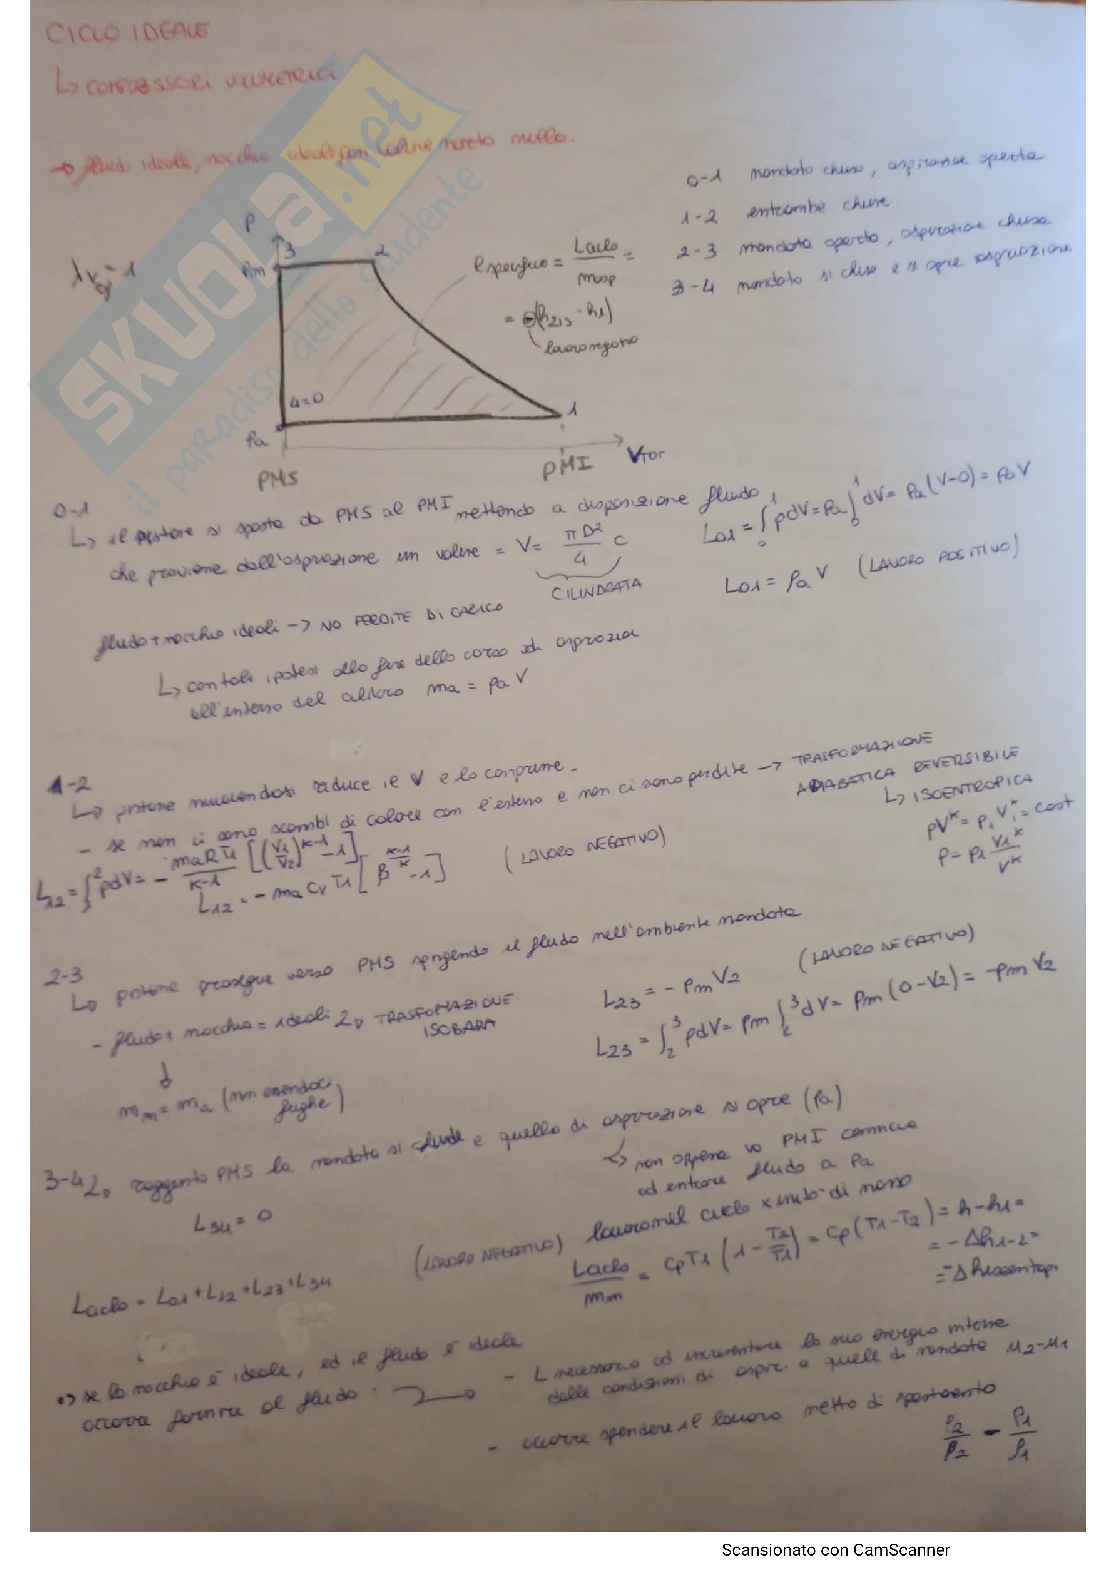 CICLO IDEALE
↳ COMPRESSORI VOLUMETRICI
→ fluido ideale, macchina ideale con volume morto nullo.
0-1 mandata chiusa, aspirazione aperta
1-2 entrambe chiuse
2-3 mandata aperta, aspirazione chiusa
3-4 mandata si chiude e si apre aspirazione
λv = 1
P
Pm
3
2
4=0
1
Pa
PMS
PMI
VTOT
l specifico = Lciclo / masp =
= ⊖(h2is - h1)
lavoro negativo
0-1
↳ il pistone si sposta da PMS al PMI mettendo a disposizione fluido
che proviene dall'aspirazione un volume = V = πD²/4 c
CILINDRATA
L01 = ∫₀¹ pdV = Pa ∫₀¹ dV = Pa (V-0) = PaV
L01 = Pa V (LAVORO POSITIVO)
fluido + macchina ideali → NO PERDITE DI CARICO
↳ con tali ipotesi alla fine della corsa di aspirazione
all'interno del cilindro ma = ρa V
1-2
↳ pistone muovendosi riduce il V e lo comprime.
- se non ci sono scambi di calore con l'esterno e non ci sono perdite → TRASFORMAZIONE
ADIABATICA REVERSIBILE
↳ ISOENTROPICA
pV^k = p1 V1^k = cost
p = p1 V1^k / V^k
L12 = ∫₁² pdV = - maRT1 / k-1 [(V1/V2)^k-1 - 1]
L12 = - ma Cv T1 [β^(k-1/k) - 1] (LAVORO NEGATIVO)
2-3
↳ pistone prosegue verso PMS spingendo il fluido nell'ambiente mandata
- fluido + macchina = ideali ↳ TRASFORMAZIONE
ISOBARA
L23 = - Pm V2 (LAVORO NEGATIVO)
L23 = ∫₂³ pdV = Pm ∫₂³ dV = Pm (0-V2) = -Pm V2
↓
mm = ma (non essendoci
fughe)
3-4 ↳ raggiunto PMS la mandata si chiude e quella di aspirazione si apre (Pa)
↳ non appena va PMI comincia
ad entrare fluido a Pa
L34 = 0
Lciclo = L01 + L12 + L23 + L34
(LAVORO NEGATIVO)
lavoro nel ciclo x unità di massa
Lciclo / mm = CpT1 (1 - T2/T1) = Cp (T1-T2) = h-h1 =
= - Δh1-2 =
= -Δh isoentropi
⇒ se la macchina è ideale, ed il fluido è ideale
occorre fornire al fluido:
- L necessario ad incrementare la sua energia interna
dalle condizioni di aspir. a quelle di mandata u2-u1
- occorre spendere il lavoro netto di spostamento
P2/ρ2 - P1/ρ1
SKUOLA.net
il paradiso dello studente
Scansionato con CamScanner